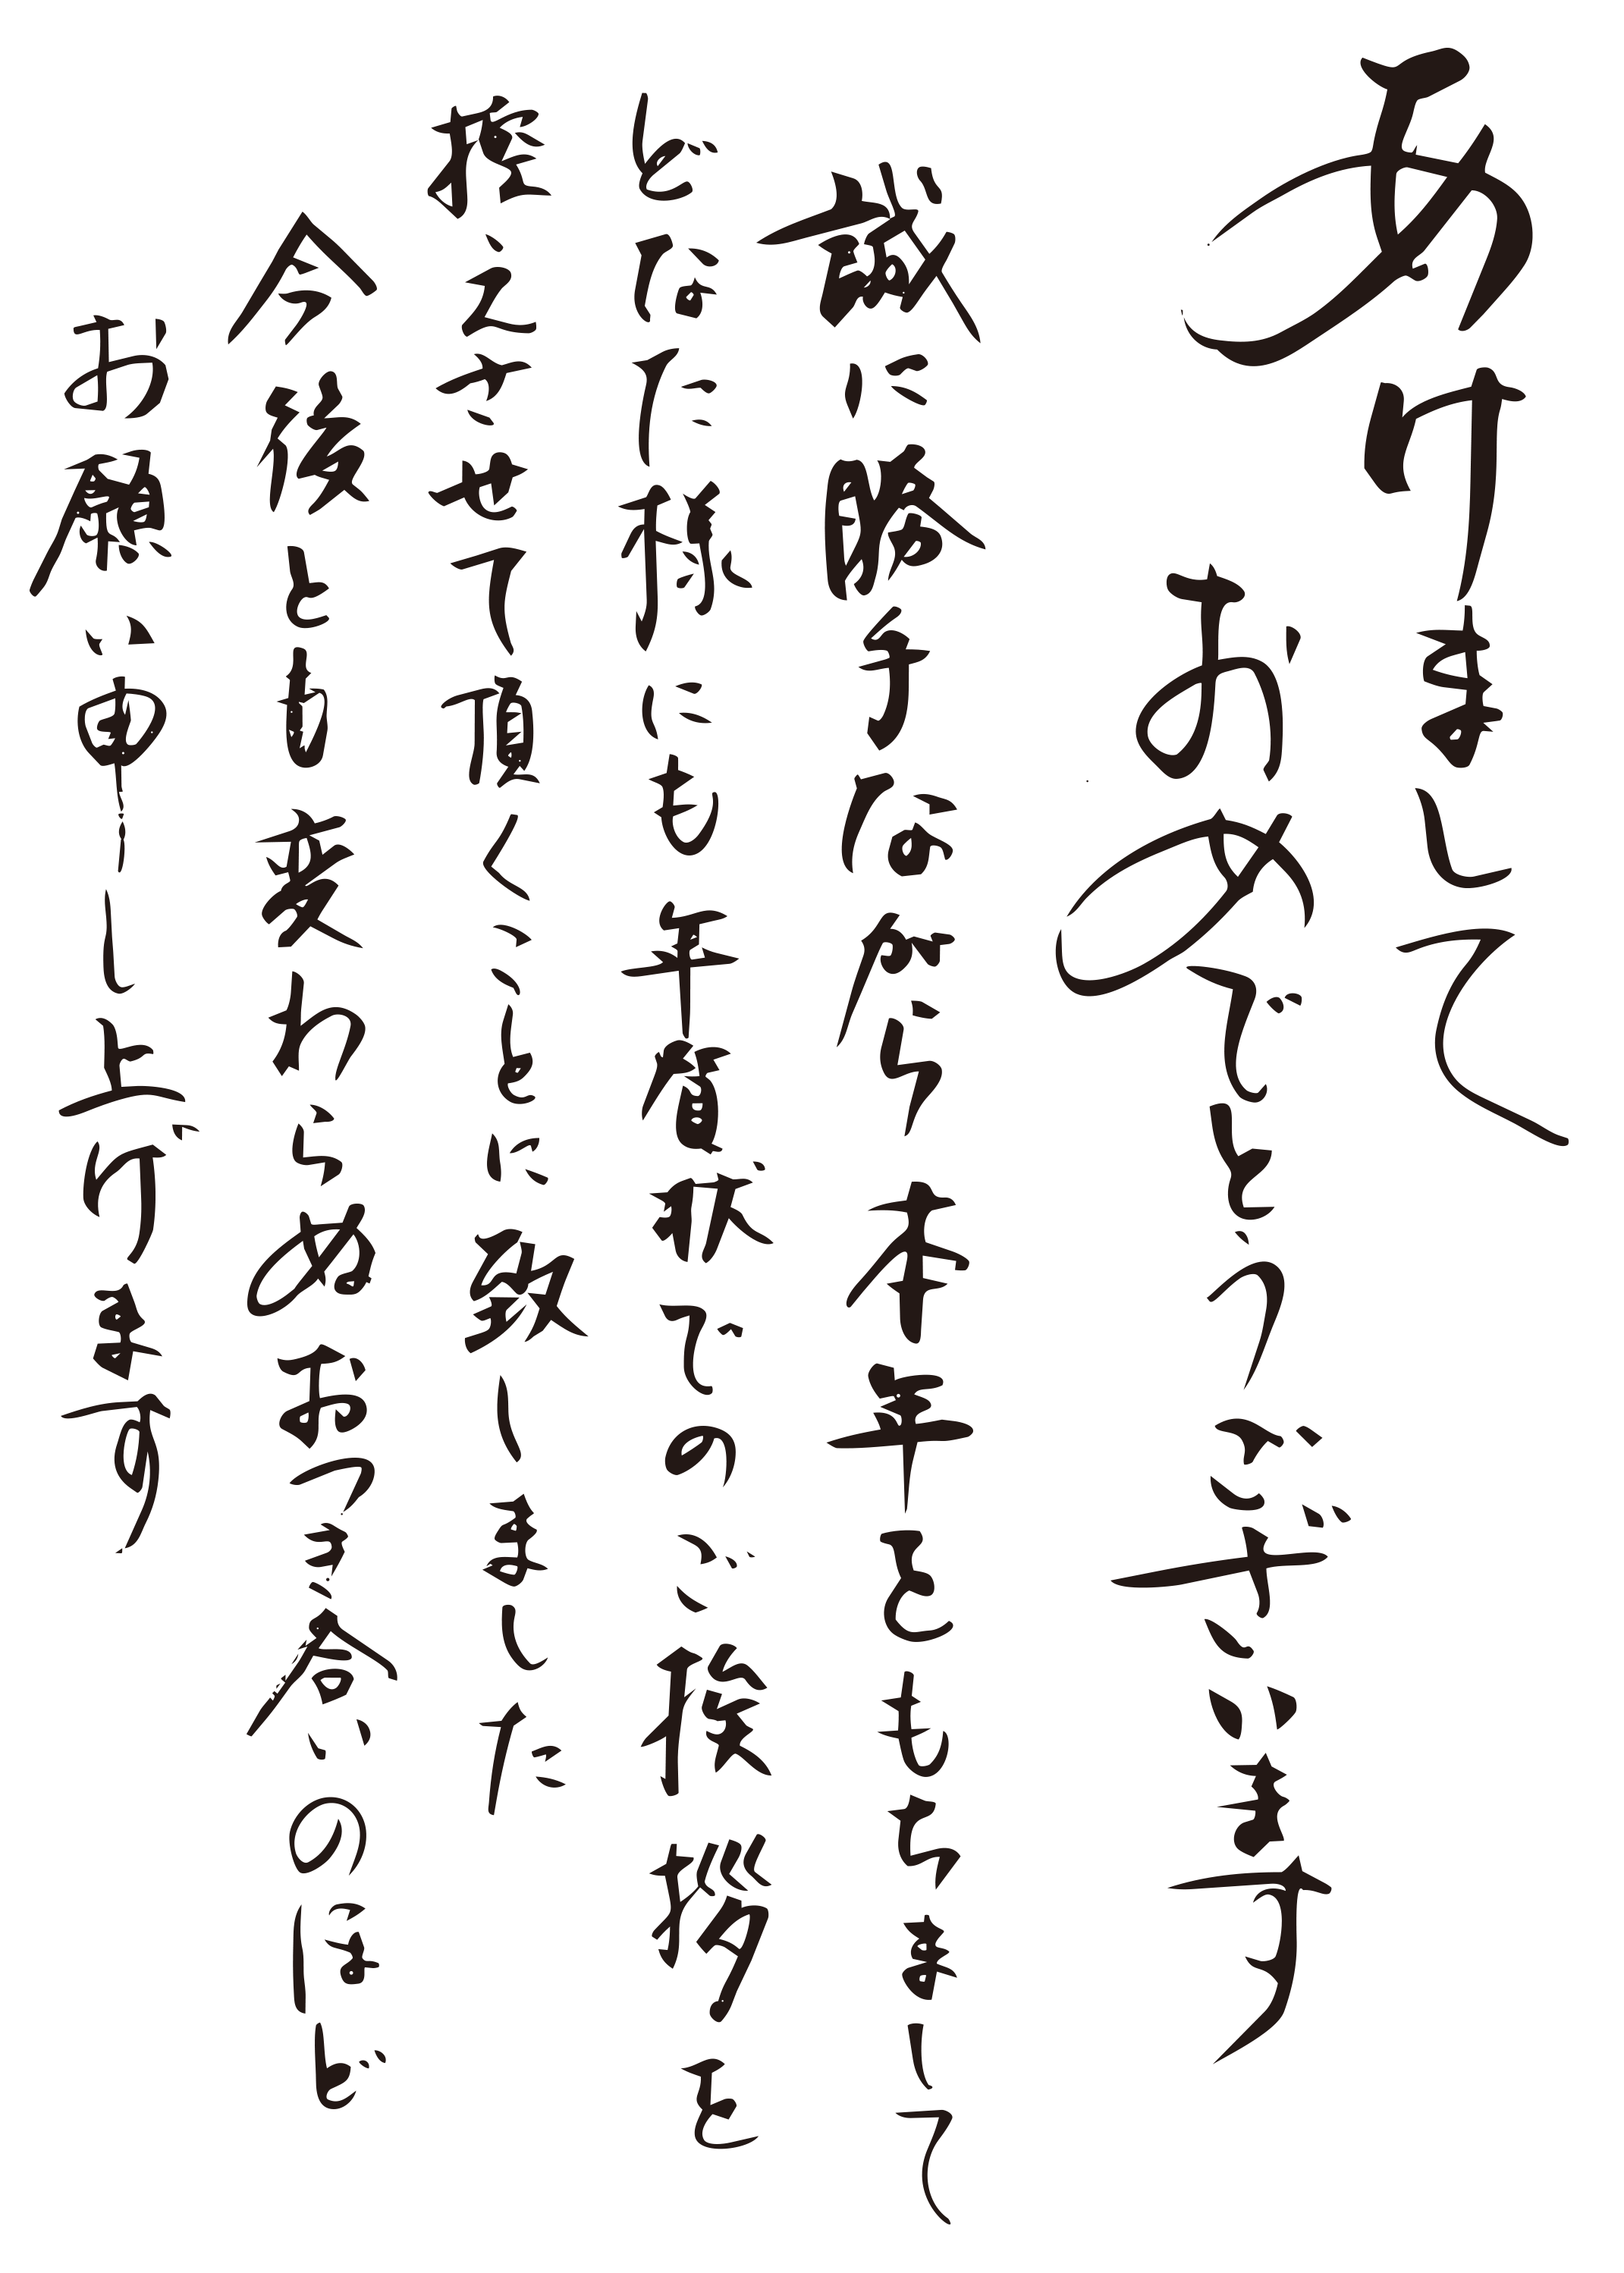 あけまして
おめでとうございます
誠に勝手ながら本年をもちまして
どなた様にも年賀状でのご挨拶を
控えさせて頂くことに致しました
今後とも変わらぬおつき合いのほど
お願い申し上げます